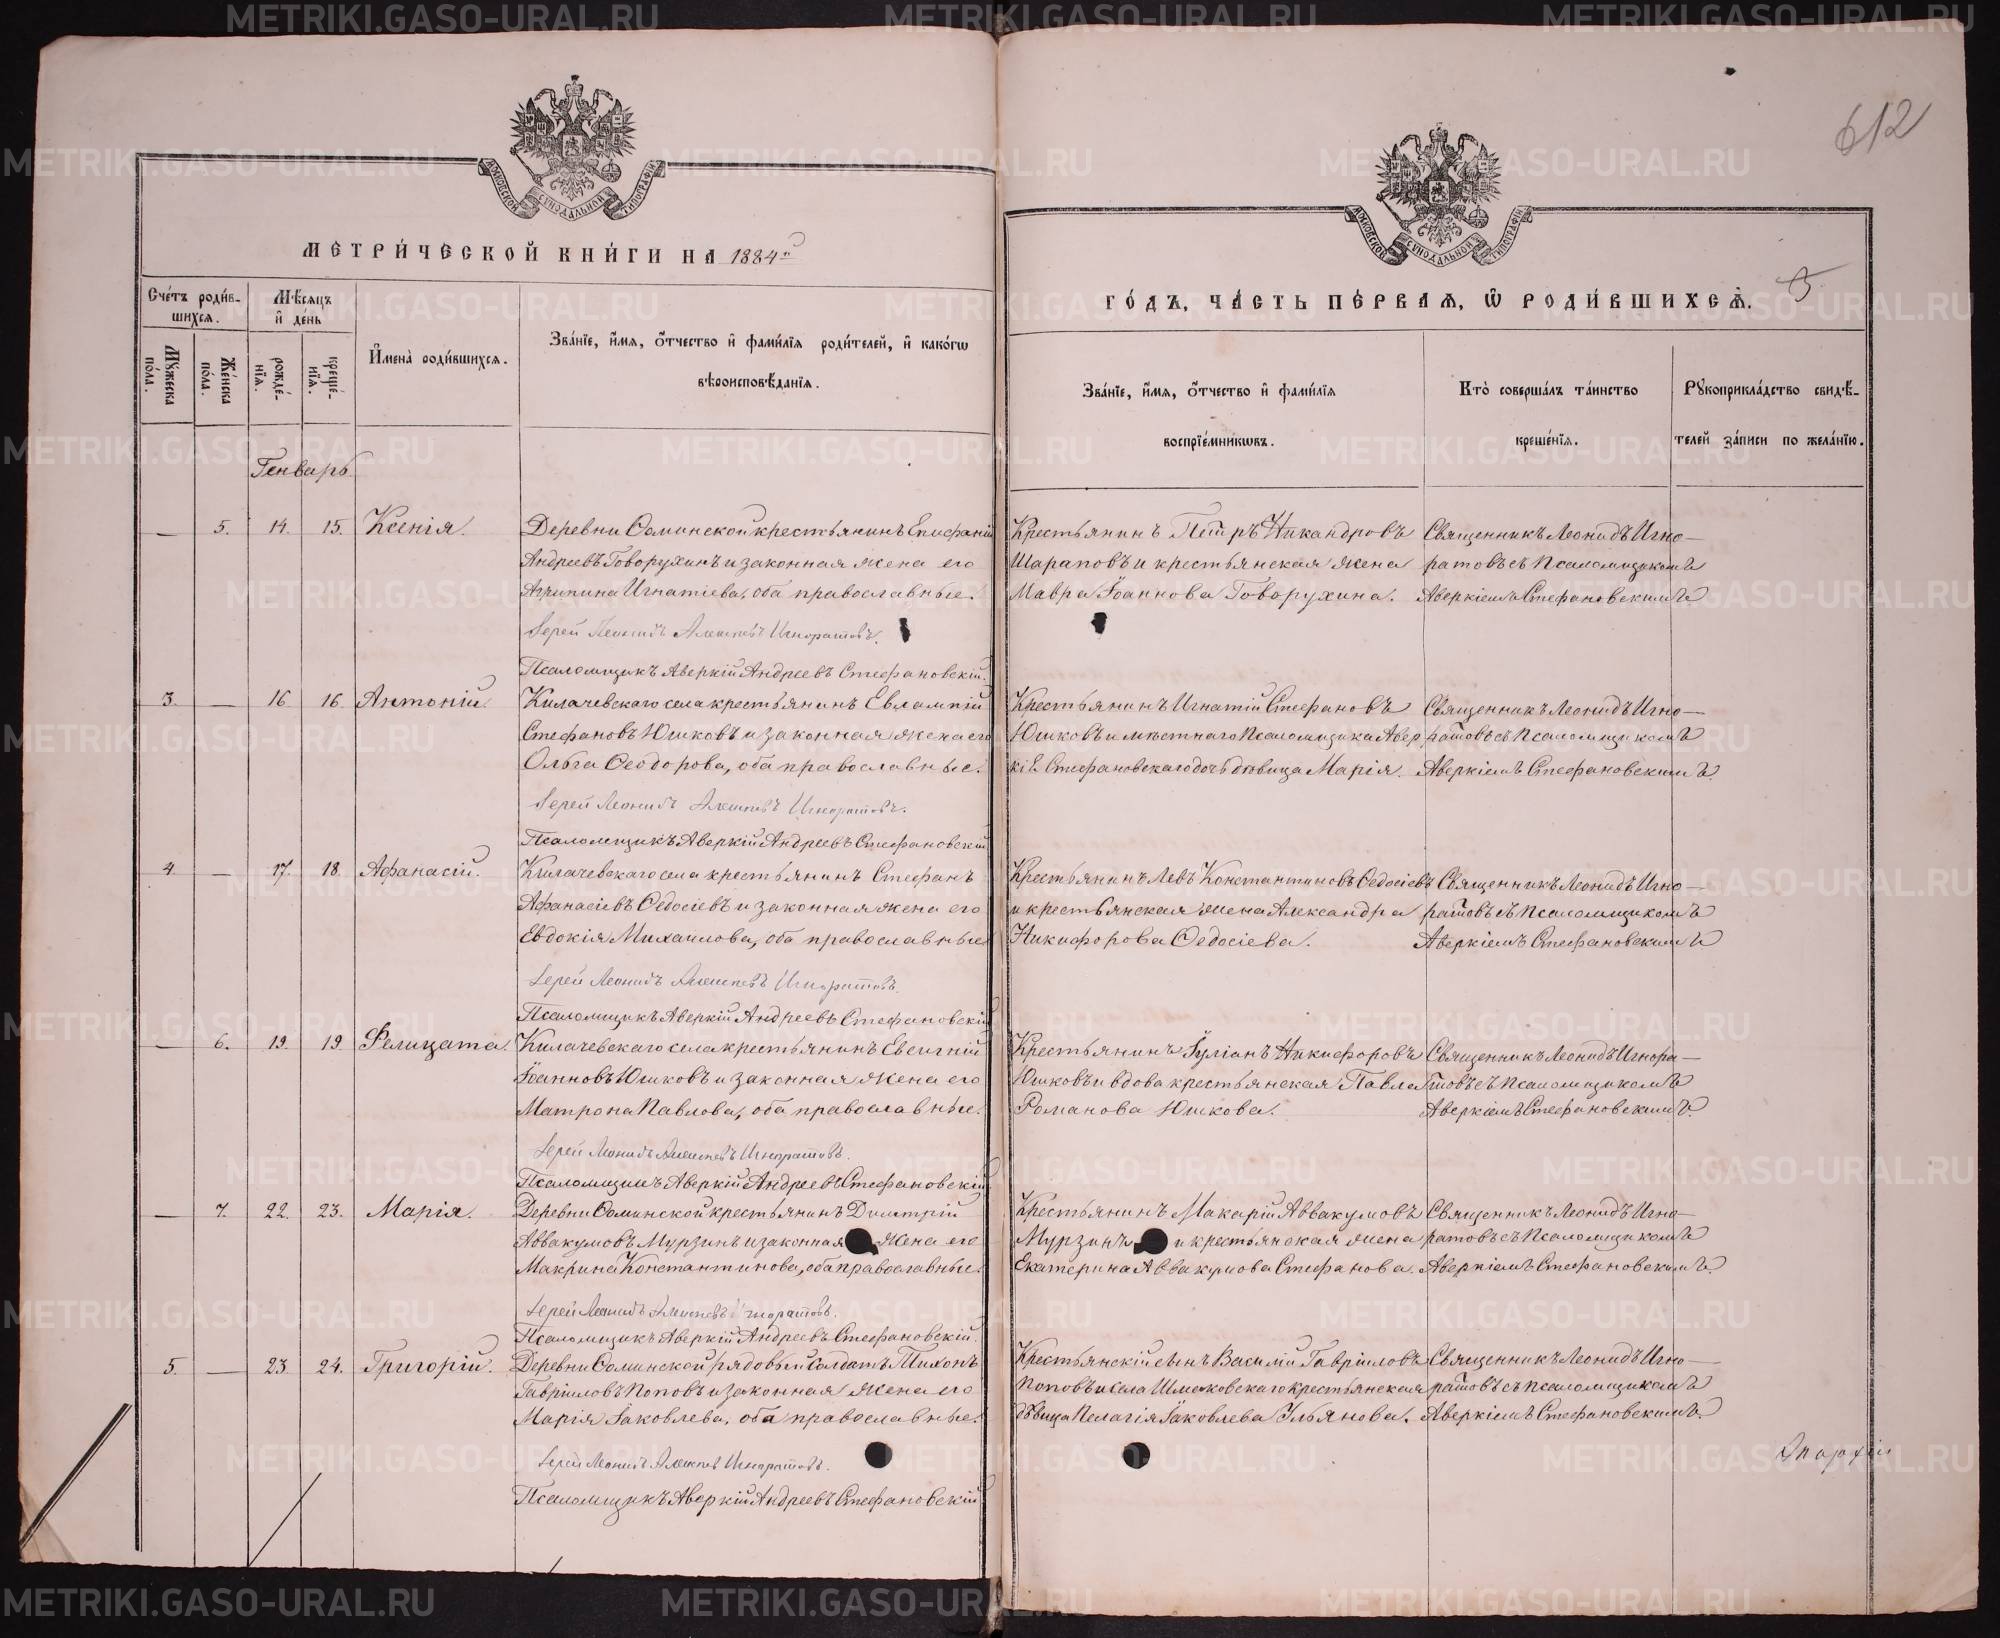 612
МОСКОВСКОЙ СѴНОДАЛЬНОЙ ТИПОГРАФІИ
МОСКОВСКОЙ СѴНОДАЛЬНОЙ ТИПОГРАФІИ
МЕТРИ́ЧЕСКОЙ КНИ́ГИ НА 1884й
ГО́ДЪ, ЧА́СТЬ ПЕ́РВАѦ, Ѡ РОДИ́ВШИХСѦ.
5
Сче́тъ роди́в-
шихсѧ.
Мѣ́сѧцъ
и҆ де́нь
Мꙋ́жеска по́ла.
Же́нска по́ла.
рожде́-
нїѧ.
креще́-
нїѧ.
И҆мена̀ роди́вшихсѧ.
Зва́нїе, и҆́мѧ, ѻ҆́тчество и҆ фами́лїѧ роди́телей, и҆ како́гѡ
вѣроисповѣ́данїѧ.
Зва́нїе, и҆́мѧ, ѻ҆́тчество и҆ фами́лїѧ
воспрїе́мникѡвъ.
Кто̀ соверша́лъ та́инство
креще́нїѧ.
Рꙋкоприкла́дство свидѣ́-
телей за́писи по жела́нїю.
Генварь
— 5. 14. 15. Ксенія. Деревни Осминской крестьянинъ Епифаній
Андреевъ Говорухинъ и законная жена его
Агрипина Игнатіева, оба православные.
Іерей Леонидъ Алексѣевъ Игноратовъ.
Псаломщикъ Аверкій Андреевъ Стефановскій.
Крестьянинъ Петръ Никандровъ
Шараповъ и крестьянская жена
Мавра Іоаннова Говорухина.
Священникъ Леонидъ Игно-
ратовъ съ Псаломщикомъ
Аверкіемъ Стефановскимъ
3. — 16. 16. Антоній. Килачевскаго села крестьянинъ Евлампій
Стефановъ Юшковъ и законная жена его
Ольга Ѳеодорова, оба православные.
Іерей Леонидъ Алексѣевъ Игноратовъ.
Псаломщикъ Аверкій Андреевъ Стефановскій
Крестьянинъ Игнатій Стефановъ
Юшковъ и мѣстнаго Псаломщика Авер
кія Стефановскаго дочь дѣвица Марія.
Священникъ Леонидъ Игно-
ратовъ съ Псаломщикомъ
Аверкіемъ Стефановскимъ.
4. — 17. 18. Афанасій. Килачевскаго села крестьянинъ Стефанъ
Афанасіевъ Ѳедосіевъ и законная жена его
Евдокія Михаилова, оба православные.
Іерей Леонидъ Алексѣевъ Игноратовъ.
Псаломщикъ Аверкій Андреевъ Стефановскій
Крестьянинъ Левъ Константиновъ Ѳедосіевъ
и крестьянская жена Александра
Никифорова Ѳедосіева.
Священникъ Леонидъ Игно-
ратовъ съ Псаломщикомъ
Аверкіемъ Стефановскимъ
— 6. 19. 19. Фелицата. Килачевскаго села крестьянинъ Евгеній
Іоанновъ Юшковъ и законная жена его
Матрона Павлова, оба православные.
Іерей Леонидъ Алексѣевъ Игноратовъ.
Псаломщикъ Аверкій Андреевъ Стефановскій
Крестьянинъ Іуліанъ Никифоровъ
Юшковъ и вдова крестьянская Павла
Романова Юшкова.
Священникъ Леонидъ Игнора-
товъ съ Псаломщикомъ
Аверкіемъ Стефановскимъ.
— 7. 22. 23. Марія. Деревни Осминской крестьянинъ Димитрій
Аввакумовъ Мурзинъ и законная жена его
Макрина Константинова, оба православные.
Іерей Леонидъ Алексѣевъ Игноратовъ.
Псаломщикъ Аверкій Андреевъ Стефановскій.
Крестьянинъ Макарій Аввакумовъ
Мурзинъ и крестьянская жена
Екатерина Аввакумова Стефанова.
Священникъ Леонидъ Игно-
ратовъ съ Псаломщикомъ
Аверкіемъ Стефановскимъ.
5. — 23. 24. Григорій. Деревни Осминской рядовый солдатъ Тихонъ
Гавріиловъ Поповъ и законная жена его
Марія Іаковлева, оба православные.
Іерей Леонидъ Алексѣевъ Игноратовъ.
Псаломщикъ Аверкій Андреевъ Стефановскій
Крестьянскій сынъ Василій Гавріиловъ
Поповъ и села Шмаковскаго крестьянская
дѣвица Пелагія Іаковлева Ульянова.
Священникъ Леонидъ Игно-
ратовъ съ псаломщикомъ
Аверкіемъ Стефановскимъ.
METRIKI.GASO-URAL.RU